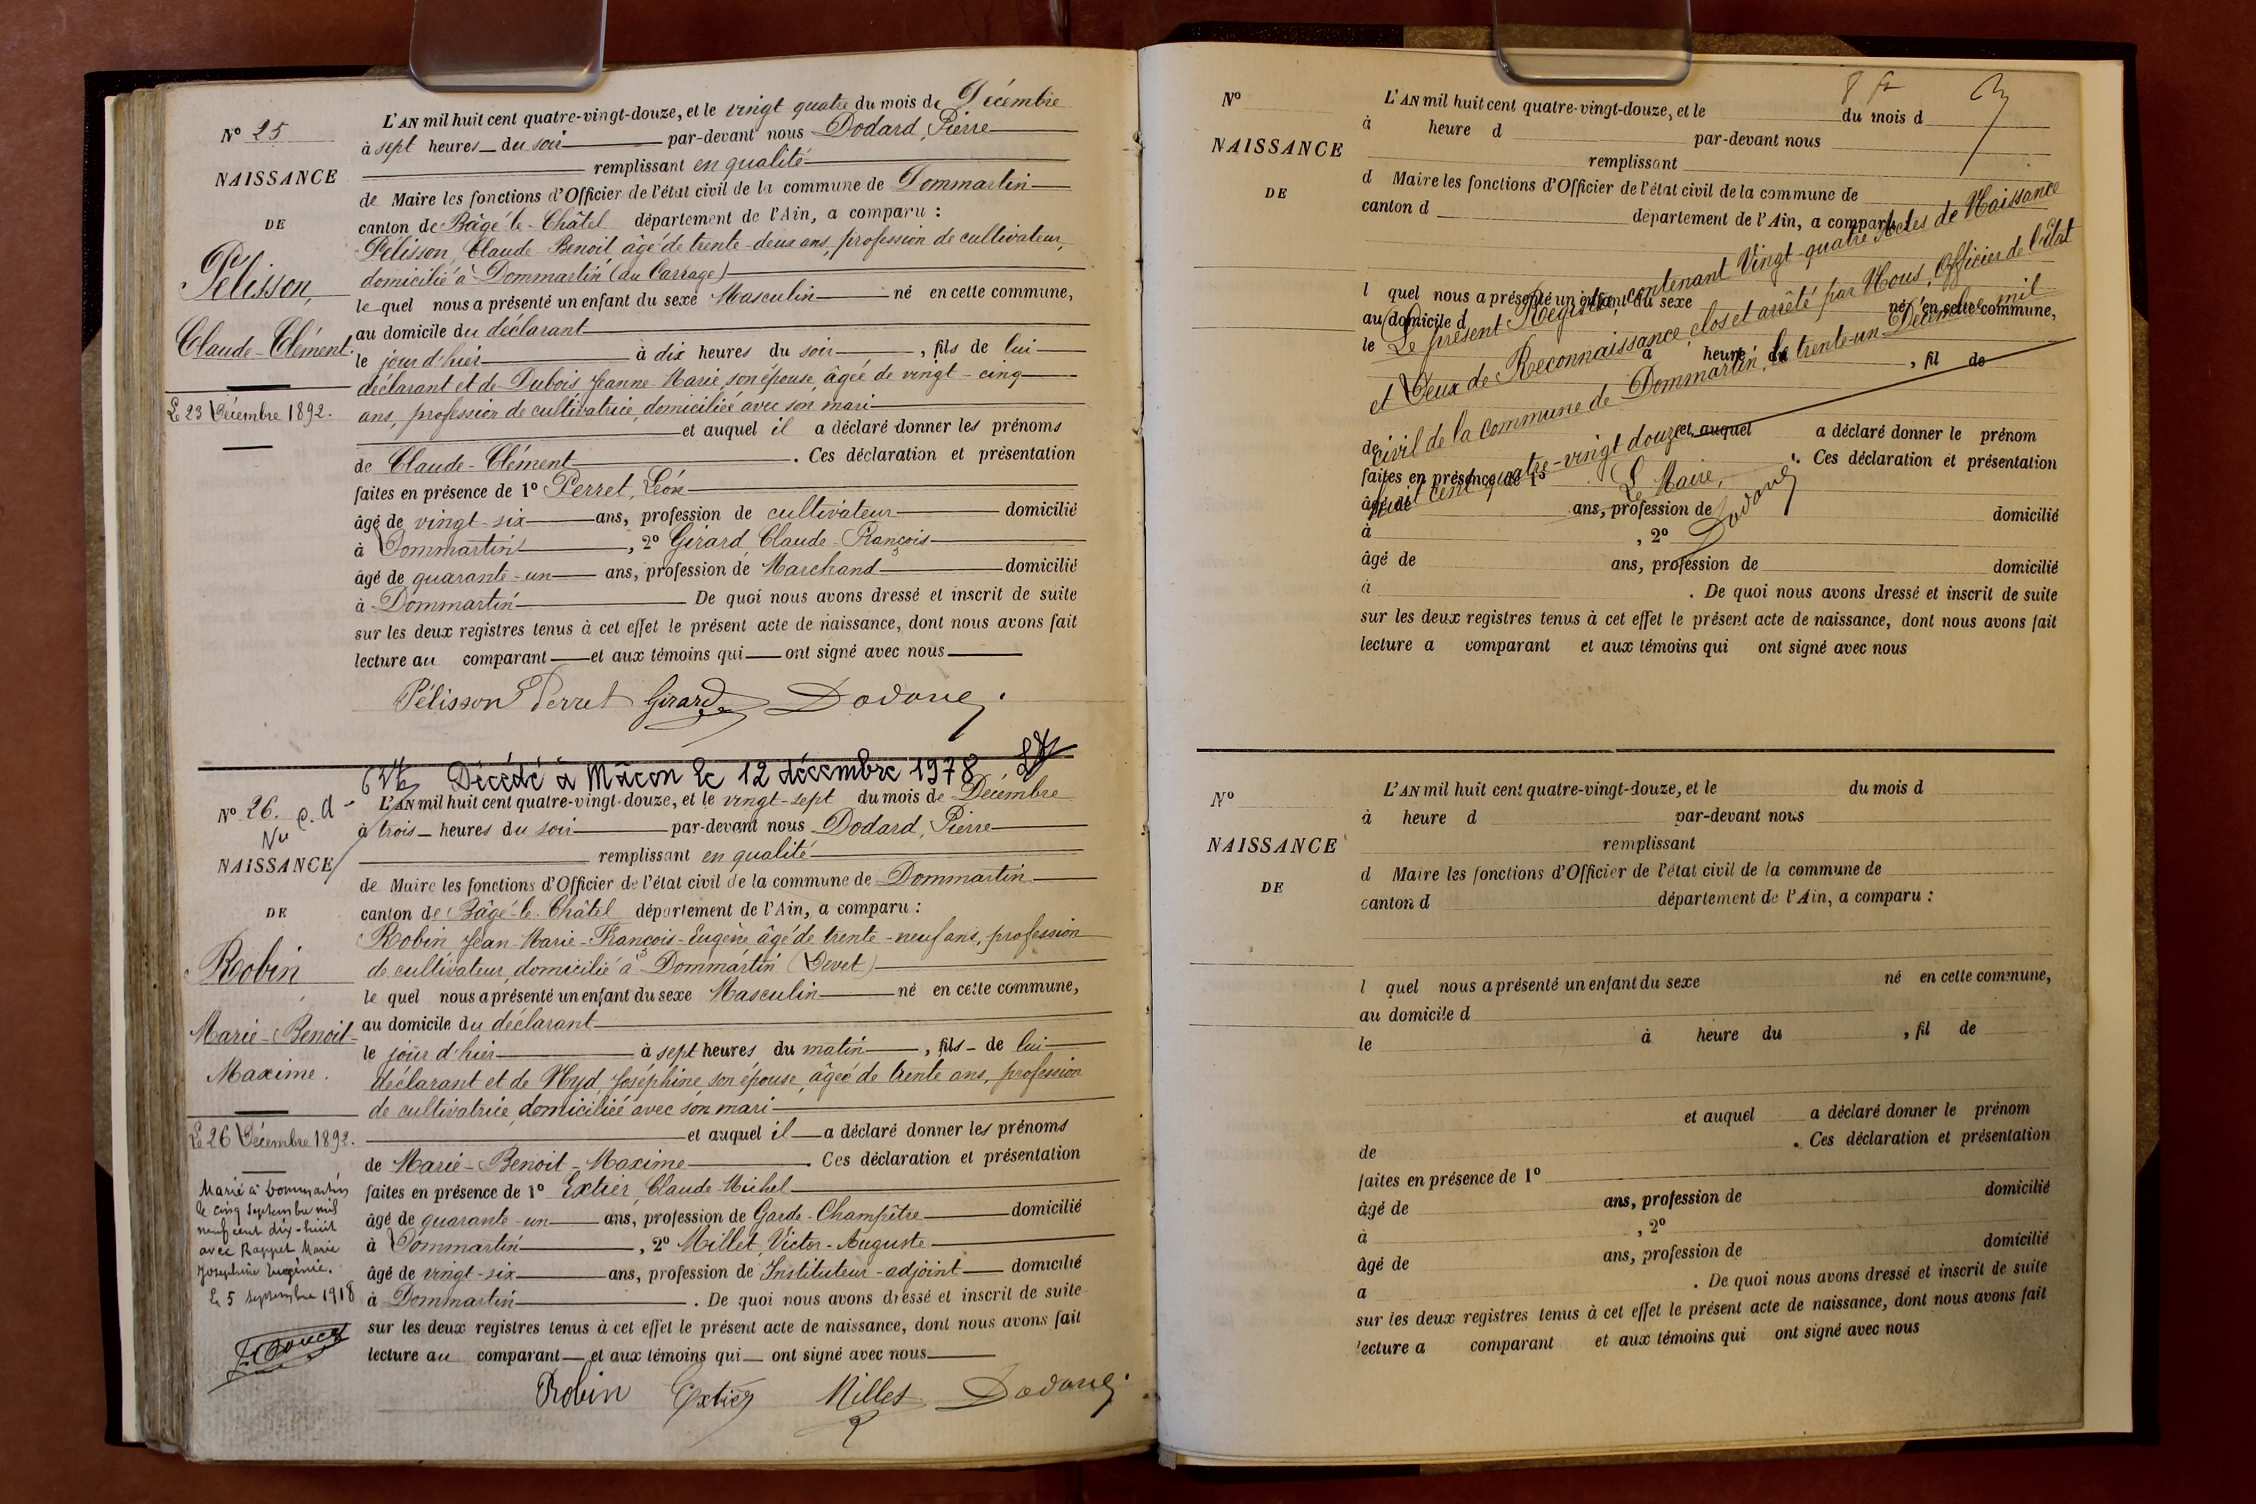 L'AN mil huit cent quatre-vingt-douze, et le vingt quatre du mois de Décembre
N° 25
à sept heures du soir par-devant nous Dodard, Pierre
NAISSANCE
remplissant en qualité
de Maire les fonctions d'Officier de l'état civil de la commune de Dommartin
DE
canton de Bâgé-le-Châtel département de l'Ain, a comparu :
Pélisson, Claude-Benoit âgé de trente-deux ans, profession de cultivateur,
Pélisson,
domicilié à Dommartin (au Carrage)
le quel nous a présenté un enfant du sexe Masculin né en cette commune,
Claude-Clément.
au domicile du déclarant
le jour d'hier à dix heures du soir, fils de lui
déclarant et de Dubois Jeanne-Marie, son épouse, âgée de vingt-cinq
Le 23 Décembre 1892.
ans, profession de cultivatrice, domiciliée avec son mari
et auquel il a déclaré donner les prénoms
de Claude-Clément. Ces déclaration et présentation
faites en présence de 1° Perret, Léon
âgé de vingt-six ans, profession de cultivateur domicilié
à Dommartin, 2° Girard Claude-François
âgé de quarante-un ans, profession de Marchand domicilié
à Dommartin De quoi nous avons dressé et inscrit de suite
sur les deux registres tenus à cet effet le présent acte de naissance, dont nous avons fait
lecture au comparant et aux témoins qui ont signé avec nous
Pélisson Perret Girard Dodard
Décédé à Mâcon le 12 décembre 1978
N° 26.
Nu
L'AN mil huit cent quatre-vingt-douze, et le vingt-sept du mois de Décembre
à trois heures du soir par-devant nous Dodard, Pierre
NAISSANCE
remplissant en qualité
de Maire les fonctions d'Officier de l'état civil de la commune de Dommartin
DE
canton de Bâgé-le-Châtel département de l'Ain, a comparu :
Robin Jean-Marie-François-Eugène âgé de trente-neuf ans, profession
Robin
de cultivateur, domicilié à Dommartin (Divet)
le quel nous a présenté un enfant du sexe Masculin né en cette commune,
Marie-Benoit-
au domicile du déclarant
Maxime.
le jour d'hier à sept heures du matin, fils de lui
déclarant et de Nyd Joséphine son épouse, âgée de trente ans, profession
de cultivatrice, domiciliée avec son mari
Le 26 Décembre 1892.
et auquel il a déclaré donner les prénoms
de Marie-Benoit-Maxime. Ces déclaration et présentation
Marié à Dommartin
le cinq septembre mil
neuf cent dix-huit
avec Rappet Marie
Joséphine Eugénie.
Le 5 septembre 1918
faites en présence de 1° Extier, Claude-Michel
âgé de quarante-un ans, profession de Garde-Champêtre domicilié
à Dommartin, 2° Millet, Victor-Auguste
âgé de vingt-six ans, profession de Instituteur-adjoint domicilié
à Dommartin. De quoi nous avons dressé et inscrit de suite
sur les deux registres tenus à cet effet le présent acte de naissance, dont nous avons fait
lecture au comparant et aux témoins qui ont signé avec nous
Robin Extier Millet Dodard
N°
L'AN mil huit cent quatre-vingt-douze, et le du mois d
à heure d par-devant nous
NAISSANCE
remplissant
DE
d Maire les fonctions d'Officier de l'état civil de la commune de
canton d département de l'Ain, a comparu :
l quel nous a présenté un enfant du sexe né en cette commune,
au domicile d
le à heure du , fil de
et auquel a déclaré donner le prénom
de . Ces déclaration et présentation
faites en présence de 1°
âgé de ans, profession de domicilié
à , 2°
âgé de ans, profession de domicilié
à . De quoi nous avons dressé et inscrit de suite
sur les deux registres tenus à cet effet le présent acte de naissance, dont nous avons fait
lecture a comparant et aux témoins qui ont signé avec nous
Le présent Registre, contenant Vingt-quatre Actes de Naissance
et Deux de Reconnaissance, clos et arrêté par Nous, Officier de l'état
civil de la commune de Dommartin, le trente-un Décembre mil
huit cent quatre-vingt douze
Le Maire,
Dodard
N°
L'AN mil huit cent quatre-vingt-douze, et le du mois d
à heure d par-devant nous
NAISSANCE
remplissant
d Maire les fonctions d'Officier de l'état civil de la commune de
DE
canton d département de l'Ain, a comparu :
l quel nous a présenté un enfant du sexe né en cette commune,
au domicile d
le à heure du , fil de
et auquel a déclaré donner le prénom
de . Ces déclaration et présentation
faites en présence de 1°
âgé de ans, profession de domicilié
à , 2°
âgé de ans, profession de domicilié
a . De quoi nous avons dressé et inscrit de suite
sur les deux registres tenus à cet effet le présent acte de naissance, dont nous avons fait
lecture a comparant et aux témoins qui ont signé avec nous